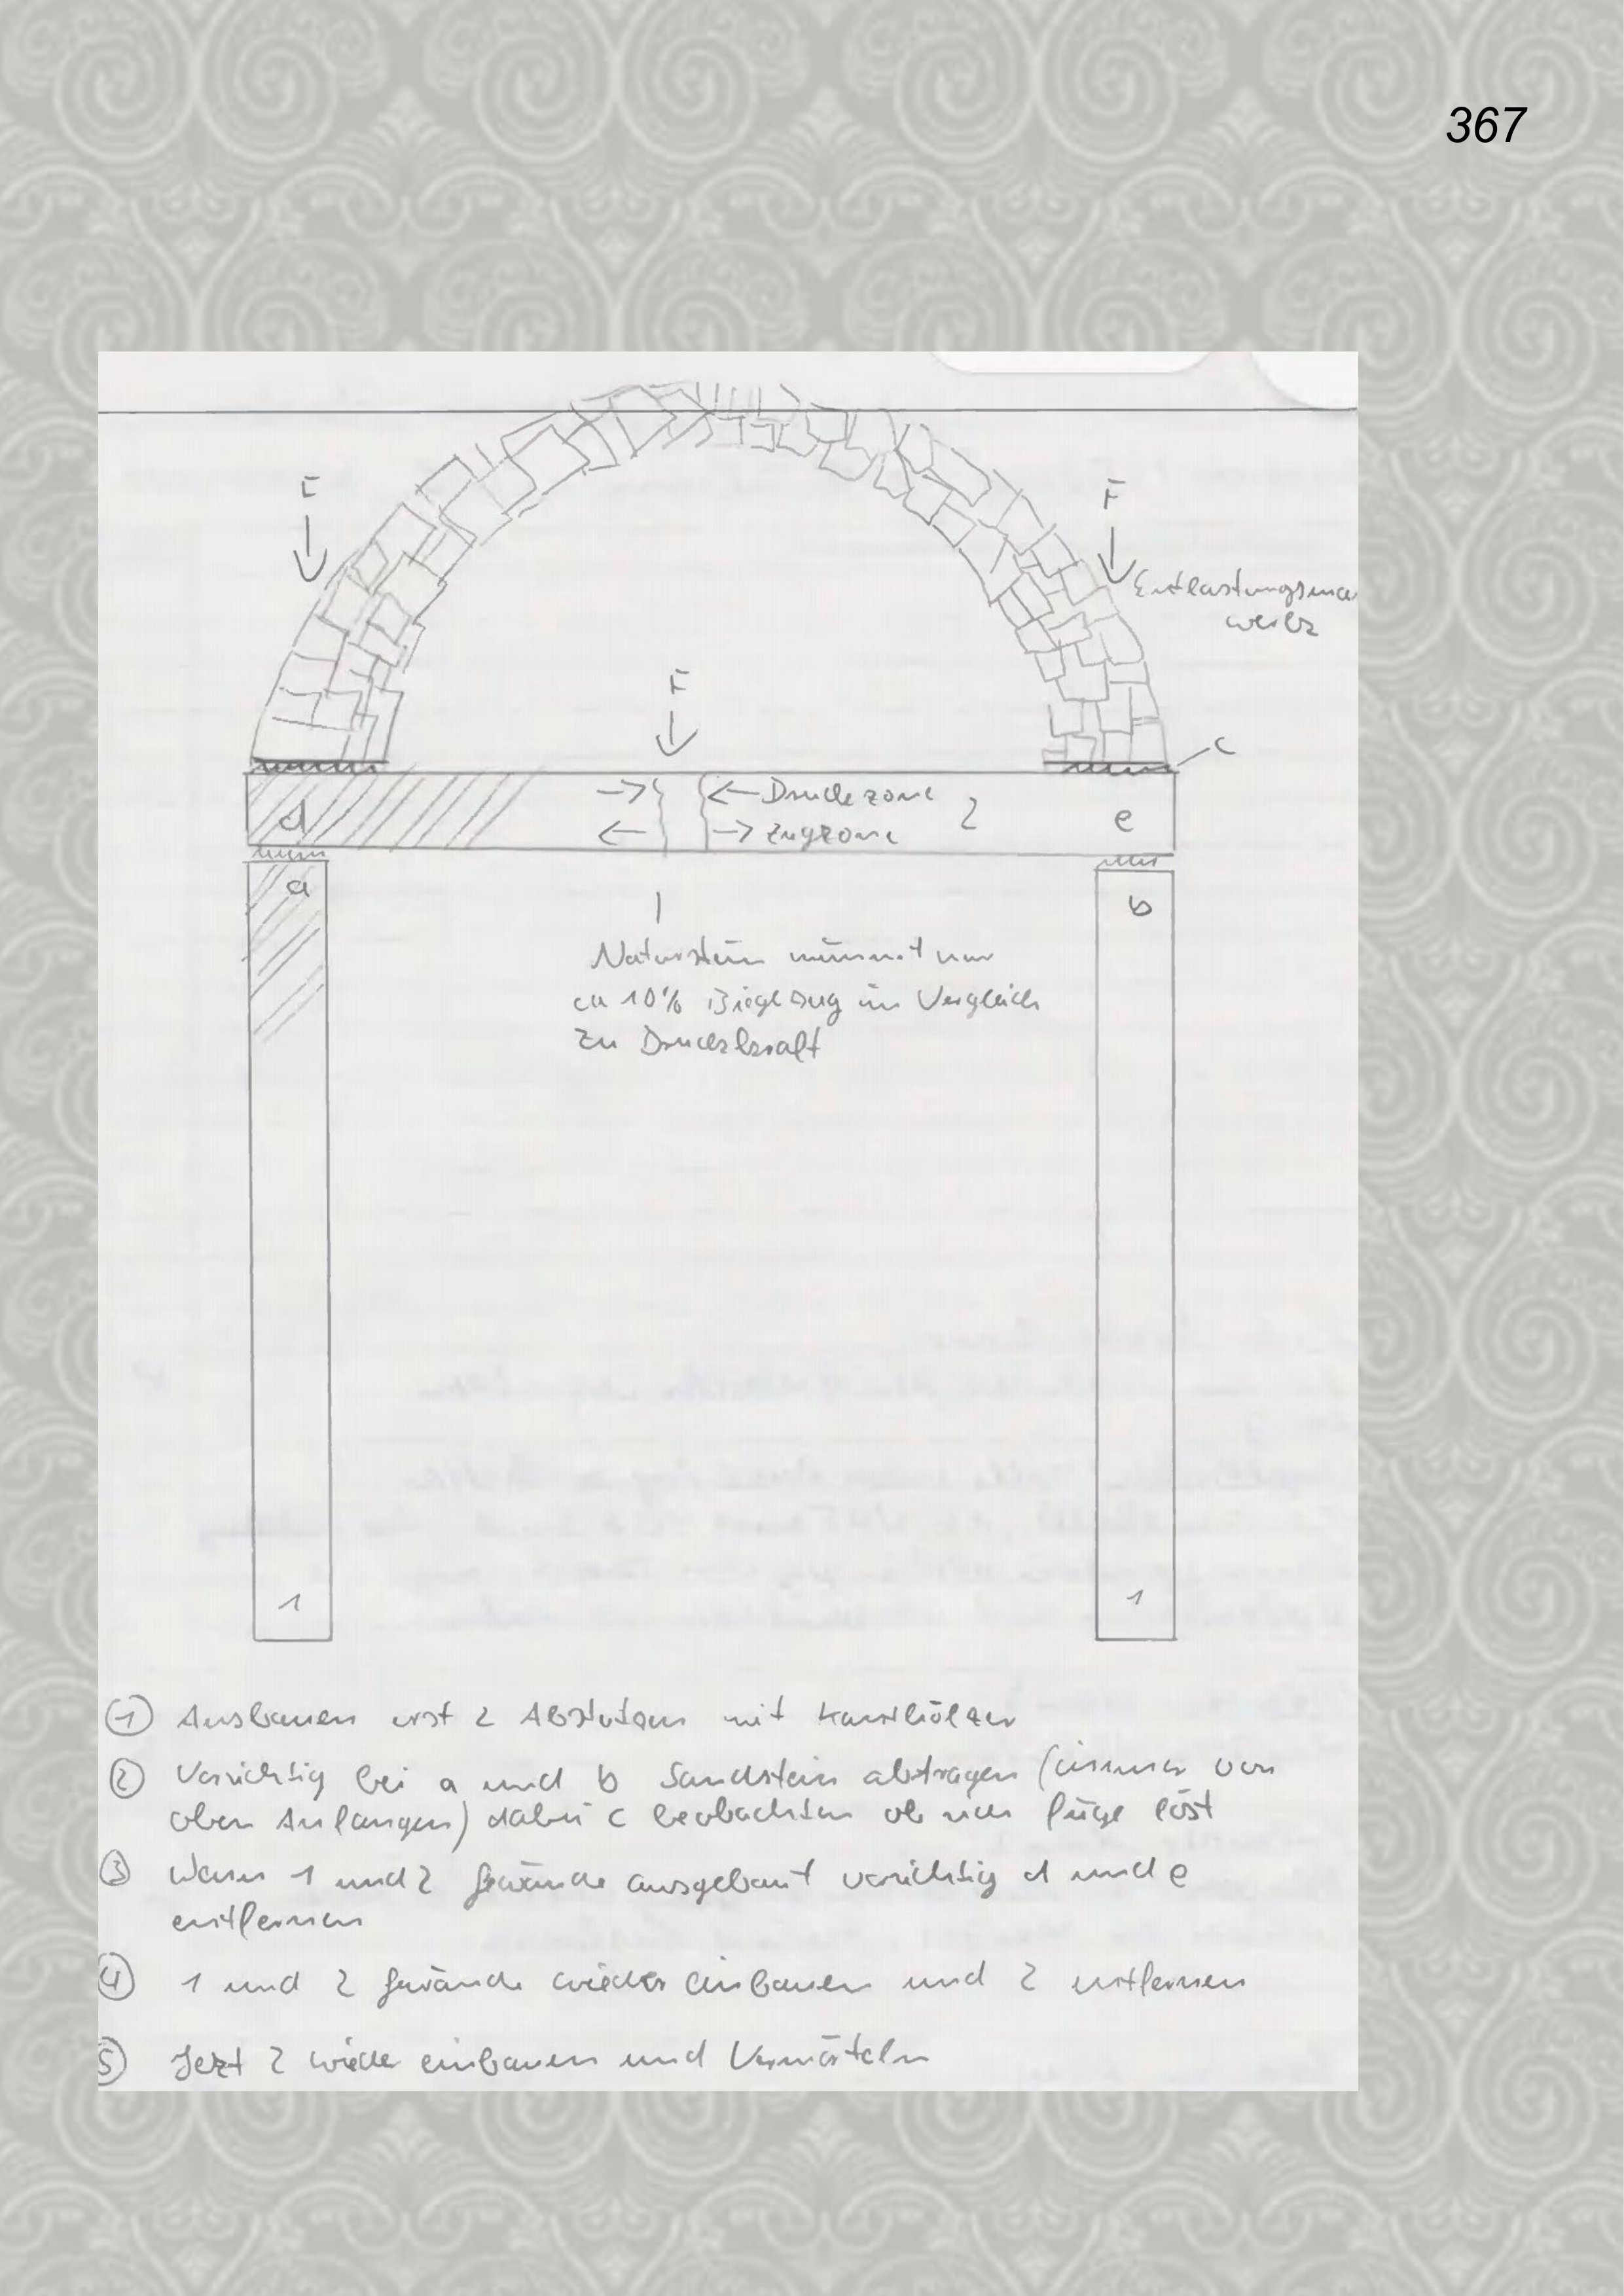 367
F
F
F
Entlastungsmau
werk
c
d
Druckzone
2
e
Zugzone
a
b
Naturstein nimmt nur
ca 10% Biegezug im Vergleich
zu Druckkraft
1
1
① Ausbauen erst 2 Abstützen mit Kanthölzer
② Vorsichtig bei a und b Sandstein abtragen (immer von
oben Anfangen) dabei c beobachten ob sich fuge löst
③ Wenn 1 und 2 Gewände ausgebaut vorsichtig d und e
entfernen
④ 1 und 2 Gewände wieder einbauen und 2 entfernen
⑤ Jetzt 2 wieder einbauen und Vermörteln